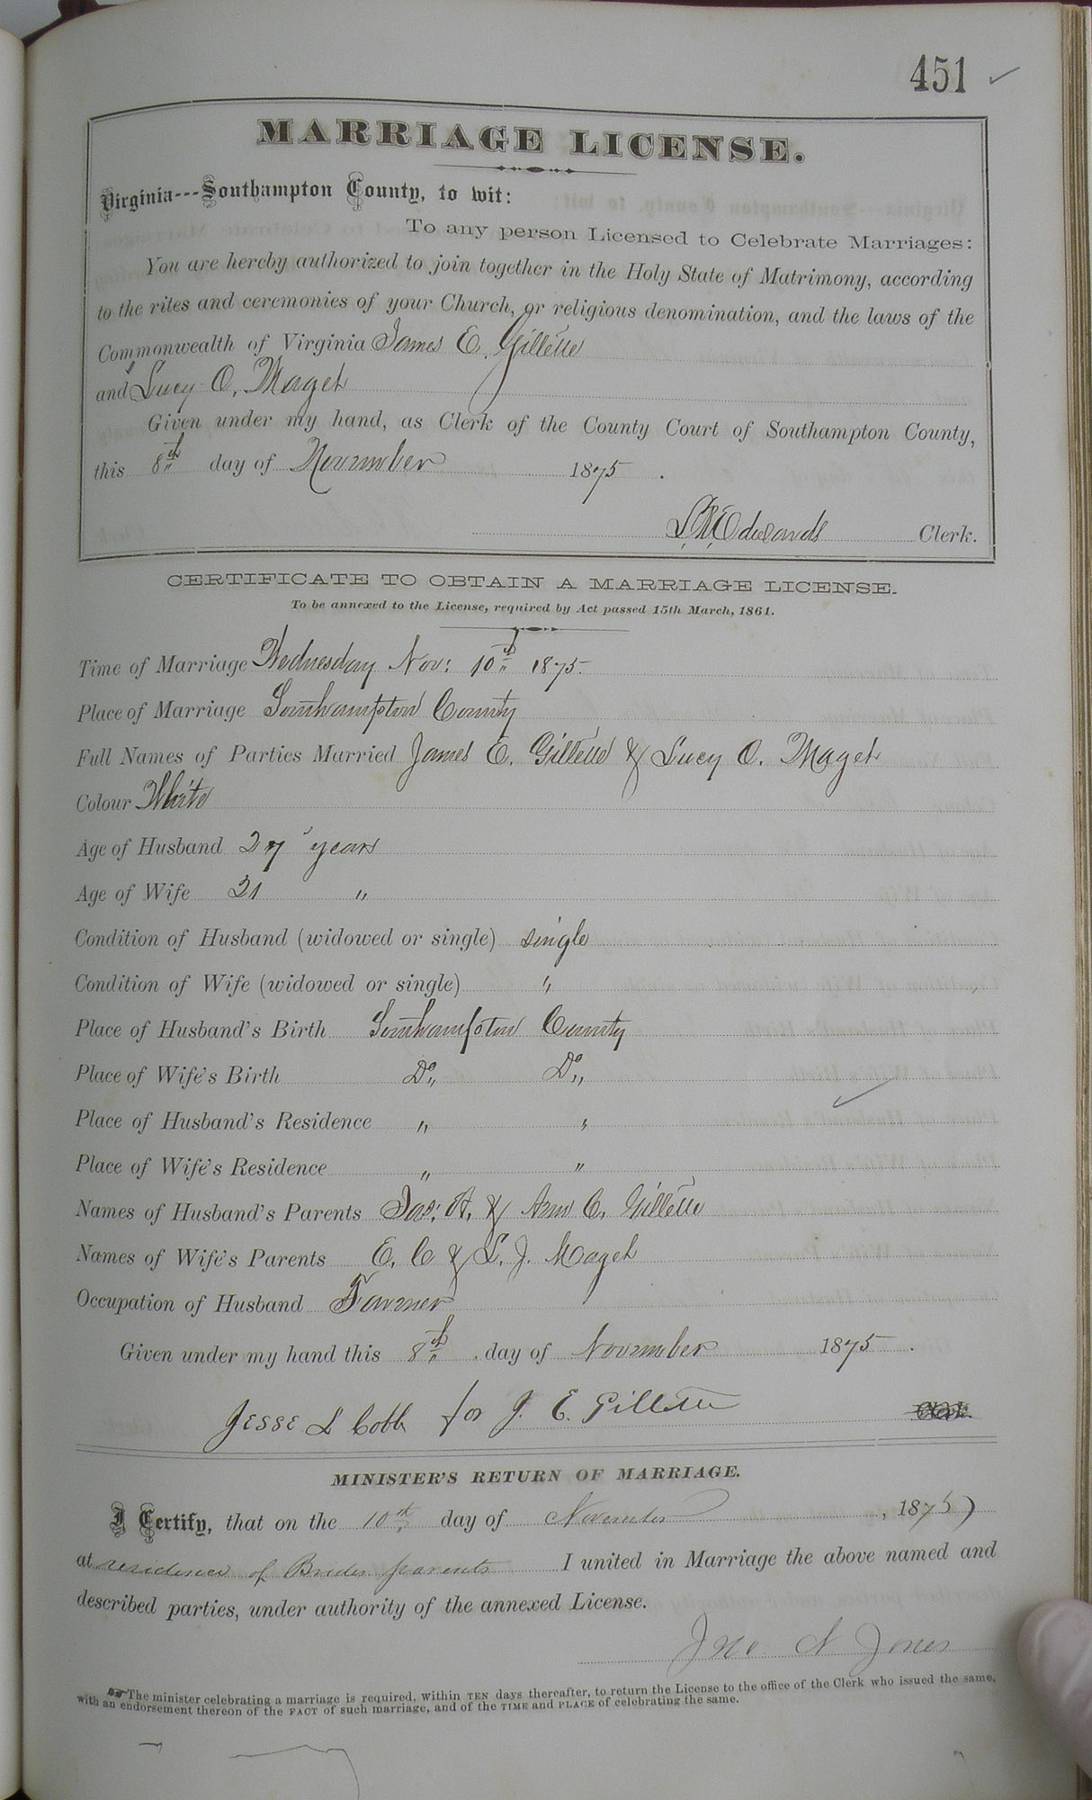 451
MARRIAGE LICENSE.
Virginia---Southampton County, to wit:
To any person Licensed to Celebrate Marriages:
You are hereby authorized to join together in the Holy State of Matrimony, according
to the rites and ceremonies of your Church, or religious denomination, and the laws of the
Commonwealth of Virginia James E. Gillette
and Lucy O. Maget
Given under my hand, as Clerk of the County Court of Southampton County,
this 8th day of November 1875.
L. R. Edwards Clerk.
CERTIFICATE TO OBTAIN A MARRIAGE LICENSE.
To be annexed to the License, required by Act passed 15th March, 1861.
Time of Marriage Wednesday Nov: 10th 1875.
Place of Marriage Southampton County
Full Names of Parties Married James E. Gillette & Lucy O. Maget
Colour White
Age of Husband 27 years
Age of Wife 21 "
Condition of Husband (widowed or single) single
Condition of Wife (widowed or single) "
Place of Husband's Birth Southampton County
Place of Wife's Birth Do, Do,
Place of Husband's Residence " "
Place of Wife's Residence " "
Names of Husband's Parents Jas: A. & Ann C. Gillette
Names of Wife's Parents E. C & L. J. Maget
Occupation of Husband Farmer
Given under my hand this 8th day of November 1875.
JESSE L Cobb for J. E. Gillette Clerk.
MINISTER'S RETURN OF MARRIAGE.
I Certify, that on the 10th day of November, 1875)
at residence of Brides parents I united in Marriage the above named and
described parties, under authority of the annexed License.
Jno N Jones
The minister celebrating a marriage is required, within TEN days thereafter, to return the License to the office of the Clerk who issued the same,
with an endorsement thereon of the FACT of such marriage, and of the TIME and PLACE of celebrating the same.